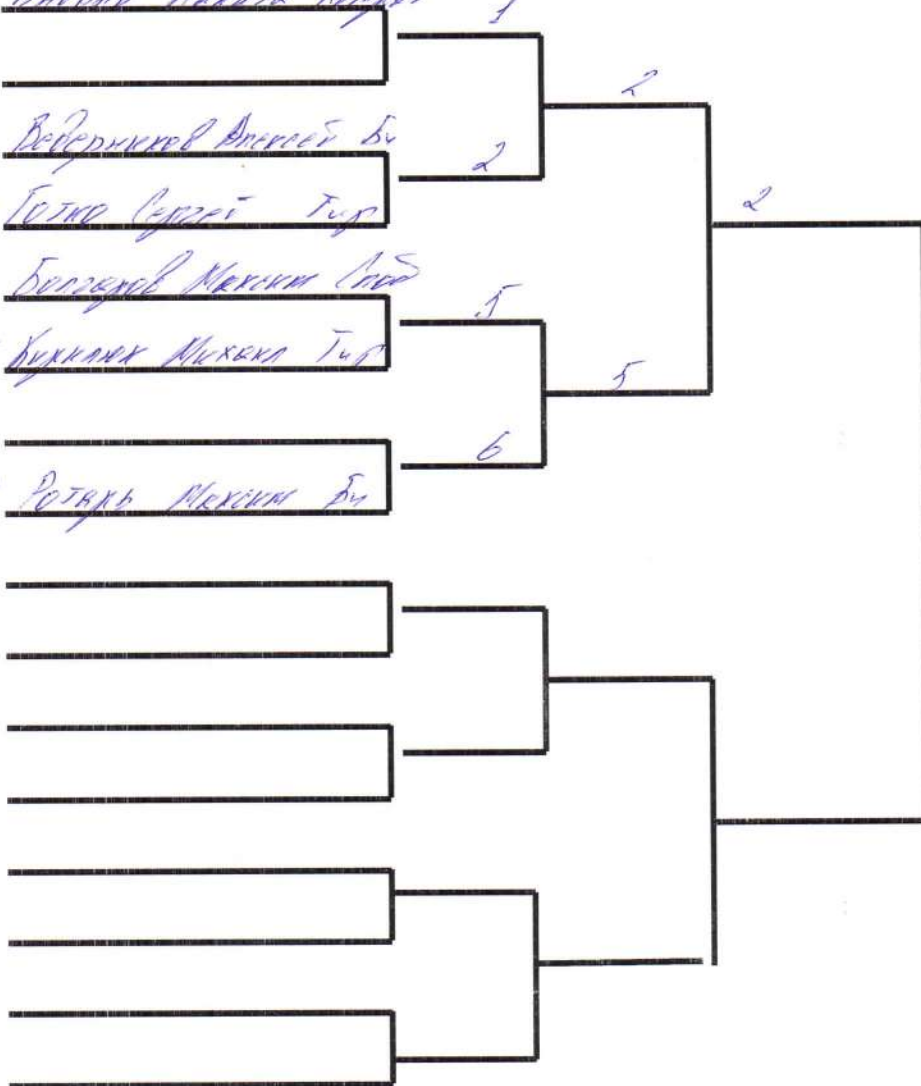 1
2
Ведерников Алексей Бч
2
Готко Сергей Тир
2
Болгаров Максим Слоб
5
Кирилюк Михаил Тир
5
6
Ротарь Максим Бч